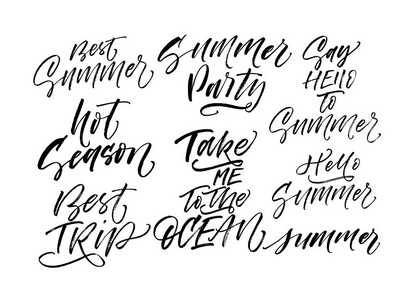 Best
Summer
hot
Season
Best
TRip
Summer
Party
Take
ME
To the
OCEAN
Say
HEllO
To
Summer
Hello
Summer
summer